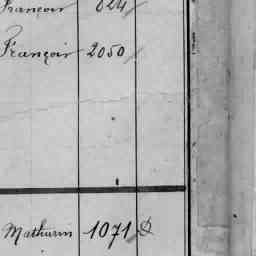 François 824
François 2050
Mathurin 1071